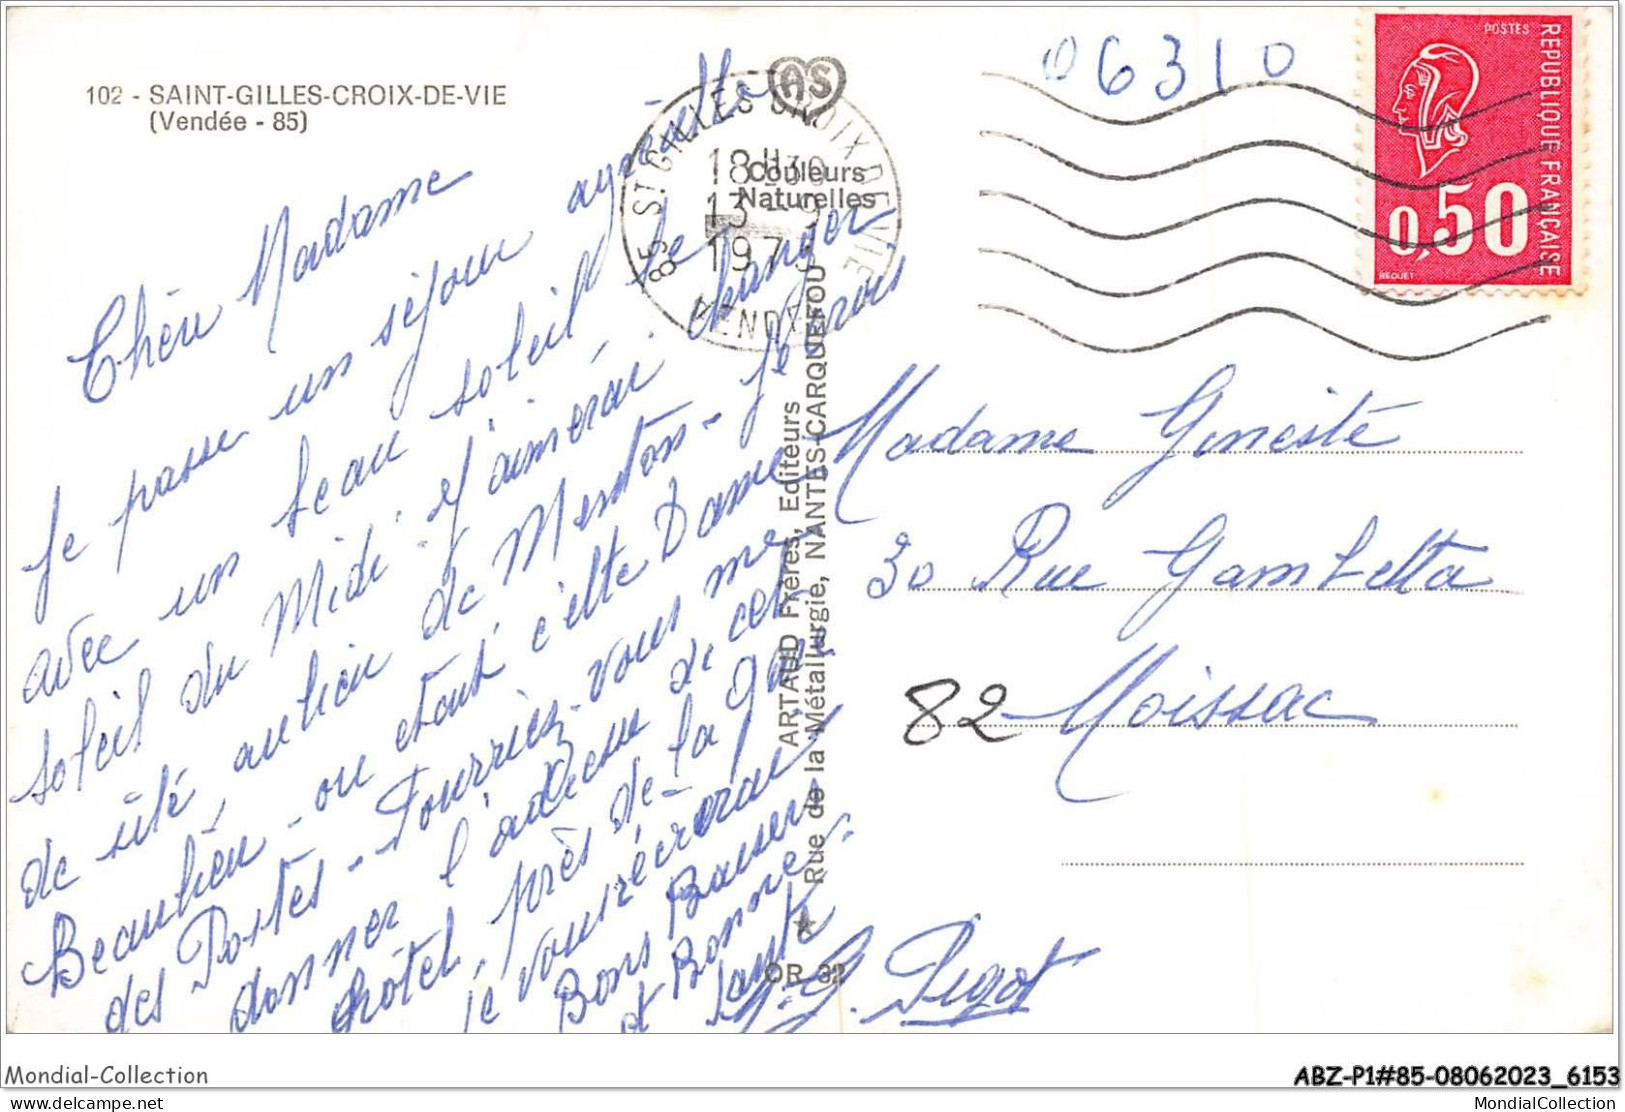 102 - SAINT-GILLES-CROIX-DE-VIE
(Vendée - 85)
Chère Madame
Je passe un séjour agréable
avec un beau soleil, le
soleil du Midi. J'aimerai changer
de côté, au lieu de Menton - Je crois
Beaulieu - ou étant cette Dame
des Postes - Pourriez-vous me
donner l'adresse de cet
hôtel, près de la gare
je vous récrirai
Bons Baisers
et Bonne
santé
G. Pigot
85 ST GILLES CROIX DE VIE
18H30
13 - 9
1975
VENDEE
AS
Couleurs
Naturelles
ARTAUD Frères, Editeurs
Rue de la Métallurgie, NANTES-CARQUEFOU
OR 32
06310
POSTES
REPUBLIQUE FRANÇAISE
0,50
BEQUET
Madame Geneste
30 Rue Gambetta
82 Moissac
Mondial-Collection
ABZ-P1#85-08062023_6153
www.delcampe.net
MondialCollection